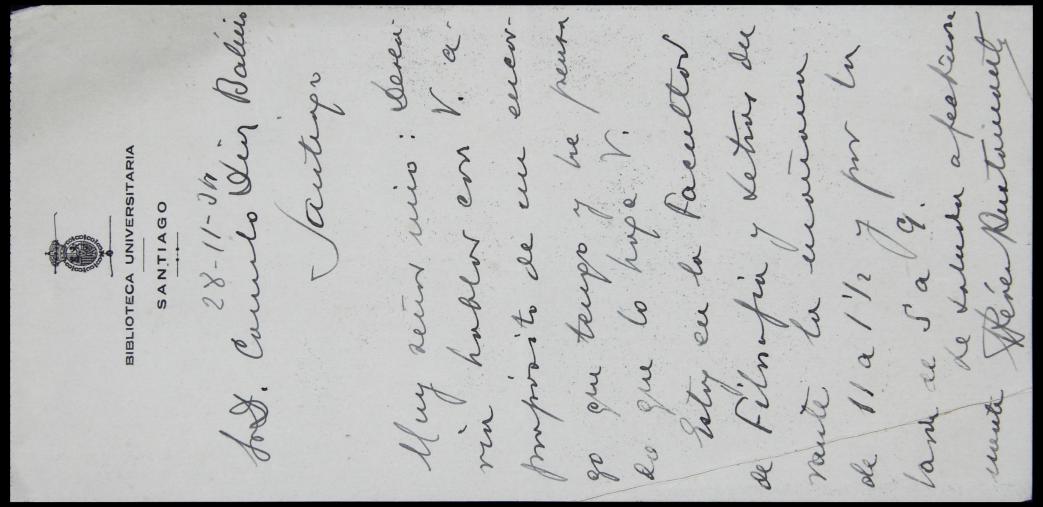 BIBLIOTECA UNIVERSITARIA
SANTIAGO
28-11-34
Sr. D. Camilo Díaz Baliño
Santiago
Muy señor mío: Desea-
ría hablar con V. a
propósito de un encar-
go que tengo y he pensa
do que lo haga V.
Estoy en la Facultad
de Filosofía y Letras du
rante la mañana
de 11 a 1 1/2 y por la
tarde de 5 a 9.
Le saluda afectuosa
mente